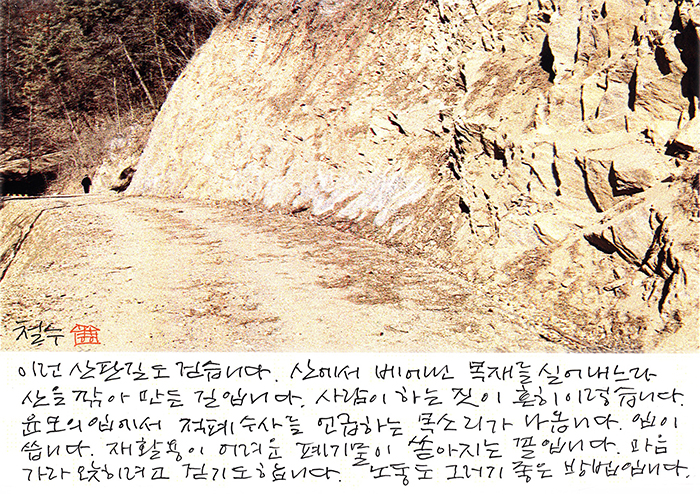 철수
이런 산판길도 걷습니다. 산에서 베어낸 목재를 실어내느라
산을 깎아 만든 길입니다. 사람이 하는 짓이 흔히 이렇습니다.
윤모의 입에서 적폐수사를 언급하는 목소리가 나옵니다. 입이
씁니다. 재활용이 어려운 폐기물이 쏟아지는 꼴입니다. 마음
가라앉히려고 걷기도 합니다. 노동도 그러기 좋은 방법입니다.